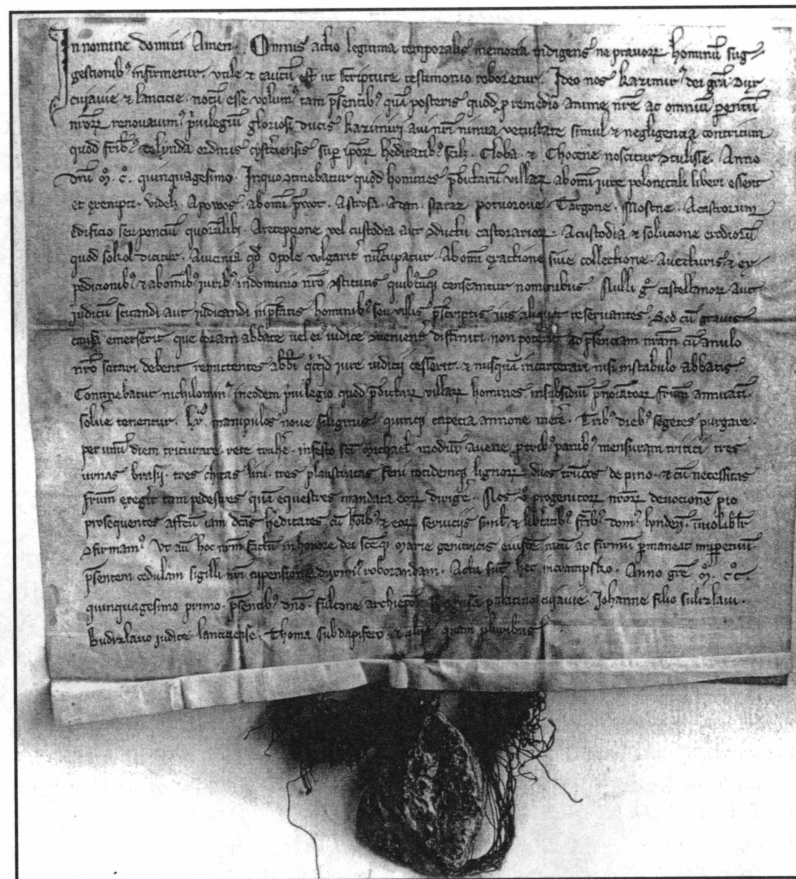 In nomine domini Amen. Omnis actio legitima temporalis memoria indigens ne pravorꝝ hominū sug-
gestionibꝰ infirmetur. utile et cautū est ut scripture testimonio roboretur. Ideo nos kazimirꝰ dei grā dux
cujavie & lancicie. notū esse volumꝰ tam p̄sentibꝰ quā posteris quod p remedio anime nr̄e ac omniū parentū
nr̄orꝝ renovavimꝰ p̄vilegiū gloriosi ducis kazimiri avi nr̄i nimia vetustate simul & negligencia contritum
quod fr̄ibꝰ de lynda ordinis cysterciensis sup ip̄orꝝ heditatibꝰ scil. Cloba. & Chocene noscitur ↄtulisse. Anno
dn̄i m̊. c̊. quinquagesimo. In quo ↄtinebatur quod homines p̄dictarū villarꝝ ab om̄i jure polonicali liberi essent
et exempti. videlꝫ. A powos. ab om̄i p̄voꝛ. A strosa. A dan. staꝛaꝛ potvorove. Targone. Mostne. A castrorum
edificio seu pontiū quorūlibꝫ. A recepcione vel custodia aut ↄductu castoriarioꝝ. A custodia & solucione erediorū
quod sokol dicitur. A vicinia qd̄ opole vulgarit̄ nūcupatur. Ab om̄i exactione sive collectione. A vecturis & ex-
pedicionibꝰ & ab om̄ibꝰ juribꝰ in dominio nr̄o ↄstitutis quibꝰcūqꝫ censeantur nominibus. Nulli g̊ castellanorꝝ aut
judicū citandi aut judicandi in p̄fatis hominibꝰ seu villis p̄scriptis jus aliquot reservantes. Sed cū gravis
causa emerserit que coram abbate vel ei judice ↄvenient̄ diffiniri non poterit. ad p̄senciam nr̄am cū anulo
nr̄o citari debent remittentes abbi qͥcqͥd jure judicii cesserit. & nusquā incarcerari nisi in stabulo abbatis.
Continebatur nichilominꝰ in eodem p̄vilegio quod p̄dictarꝝ villarꝝ homines in subsidiū p̄noiatorꝝ fr̄um annuatī
solvere tenentur. Lx. manipulos nove siliginis. quinqꝫ capecia annone metere. Tribꝰ diebꝰ segetes purgare.
per unū diem triturare. rete trahē. in festo sc̄i Michael. modiū avene p tribꝰ panibꝰ mensuram tritici. tres
urnas brasii. tres chitas lini. tres plaustratas feni totidemqꝫ lignorꝝ. duos trūcos de pino. & cū necessitas
fr̄um exegerit tam pedestres quā equestres mandata eorꝝ dirigē. Nos v̊ progenitorꝝ nr̄orꝝ devocionē pio
prosequentes affectū jam dictas hereditates cū hoībꝰ & eorꝝ serviciis simul. & libertatibꝰ fr̄ibꝰ domꝰ lynden̄. inviolabilr̄
ↄfirmamꝰ. Ut aūt hoc nr̄m factū in honore dei sc̄eqꝫ Marie genitricis ejusdē ratū ac firmū p̄maneat in p̄petuū
p̄sentem cedulam sigilli nr̄i appensione duximꝰ roborandam. Acta sūt hec in crampsko. Anno grē m̊. cc̊.
quinquagesimo primo. p̄sentibꝰ dn̄o fulcone archiepo. palatino cujavie. Johanne filio sulizlavi.
budizlavo judice lanciciense. Thoma subdapifero et aliis quam pluribus